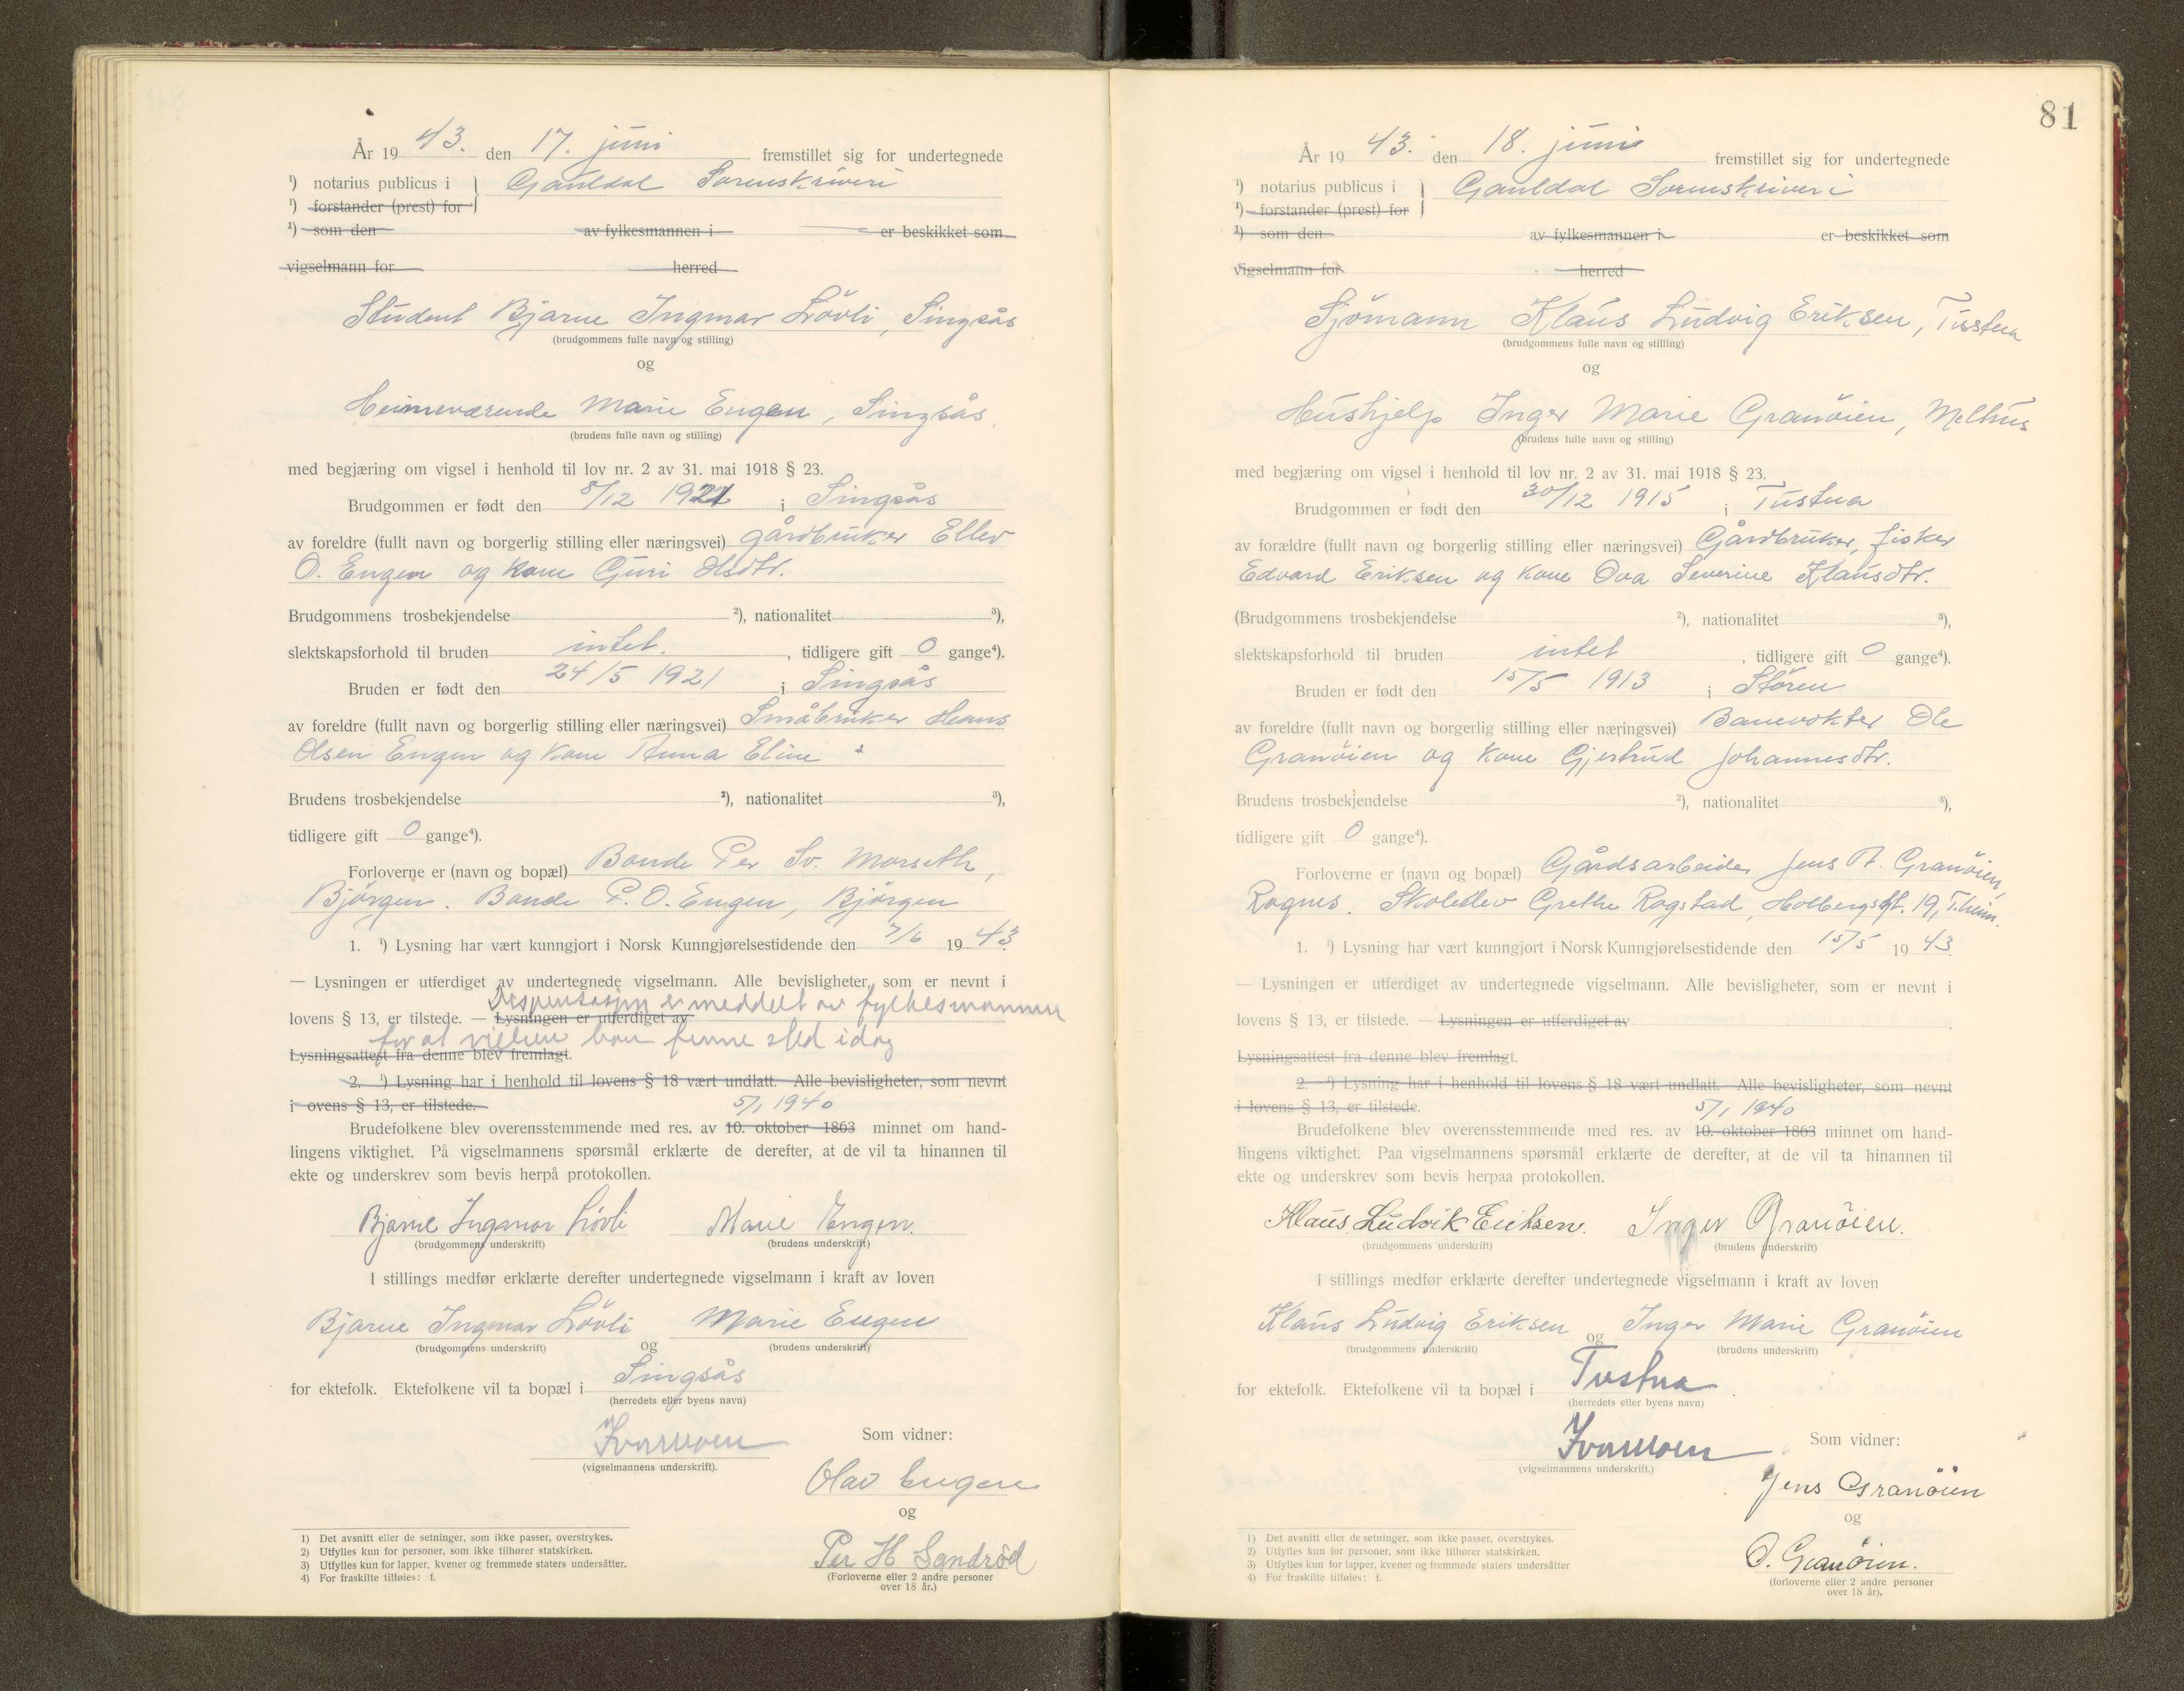 År 19 43. den 17. juni fremstillet sig for undertegnede
¹) notarius publicus i } Gauldal Sorenskriveri
¹) forstander (prest) for
¹) som den av fylkesmannen i er beskikket som
vigselmann for herred
Student Bjarne Ingmar Lövli, Singsås
(brudgommens fulle navn og stilling)
og
Heimeværende Marie Engen, Singsås.
(brudens fulle navn og stilling)
med begjæring om vigsel i henhold til lov nr. 2 av 31. mai 1918 § 23.
Brudgommen er født den 8/12 1921 i Singsås
av foreldre (fullt navn og borgerlig stilling eller næringsvei) gårdbruker Ellev
O. Engen og kone Guri Olsdtr.
Brudgommens trosbekjendelse ²), nationalitet ³),
slektskapsforhold til bruden intet. , tidligere gift 0 gange⁴).
Bruden er født den 24/5 1921 i Singsås
av foreldre (fullt navn og borgerlig stilling eller næringsvei) Småbruker Hans
Olsen Engen og kone Anna Eline
Brudens trosbekjendelse ²), nationalitet ³),
tidligere gift 0 gange⁴).
Forloverne er (navn og bopæl) Bonde Per Sv. Morseth,
Bjørgen. Bonde P. O. Engen, Bjørgen
1. ¹) Lysning har vært kunngjort i Norsk Kunngjørelsestidende den 7/6 19 43.
— Lysningen er utferdiget av undertegnede vigselmann. Alle bevisligheter, som er nevnt i
Dispensasjon er meddelt av fylkesmannen
lovens § 13, er tilstede. — Lysningen er utferdiget av
for at vielsen kan finne sted idag
Lysningsattest fra denne blev fremlagt.
2. ¹) Lysning har i henhold til lovens § 18 vært undlatt. Alle bevisligheter, som nevnt
i ovens § 13, er tilstede. 5/1 1940
Brudefolkene blev overensstemmende med res. av 10. oktober 1863 minnet om hand-
lingens viktighet. På vigselmannens spørsmål erklærte de derefter, at de vil ta hinannen til
ekte og underskrev som bevis herpå protokollen.
Bjarne Ingmar Lövli Marie Engen.
(brudgommens underskrift) (brudens underskrift)
I stillings medfør erklærte derefter undertegnede vigselmann i kraft av loven
Bjarne Ingmar Lövli og Marie Engen
(brudgommens underskrift) (brudens underskrift)
for ektefolk. Ektefolkene vil ta bopæl i Singsås
(herredets eller byens navn)
Som vidner:
(vigselmannens underskrift).
Olav Engen
og
Per H Sandrød
(Forloverne eller 2 andre personer
over 18 år.)
1) Det avsnitt eller de setninger, som ikke passer, overstrykes.
2) Utfylles kun for personer, som ikke tilhører statskirken.
3) Utfylles kun for lapper, kvener og fremmede staters undersåtter.
4) For fraskilte tilføies: f.
81
År 19 43. den 18. juni fremstillet sig for undertegnede
¹) notarius publicus i } Gauldal Sorenskriveri
¹) forstander (prest) for
¹) som den av fylkesmannen i er beskikket som
vigselmann for herred
Sjömann Klaus Ludvig Eriksen, Tustna
(brudgommens fulle navn og stilling)
og
Hushjelp Inger Marie Granöien, Melhus
(brudens fulle navn og stilling)
med begjæring om vigsel i henhold til lov nr. 2 av 31. mai 1918 § 23.
Brudgommen er født den 30/12 1915 i Tustna
av forældre (fullt navn og borgerlig stilling eller næringsvei) Gårdbruker, fisker
Edvard Eriksen og kone Ova Severine Klausdtr.
(Brudgommens trosbekjendelse ²), nationalitet ³),
slektskapsforhold til bruden intet , tidligere gift 0 gange⁴).
Bruden er født den 15/5 1913 i Stören
av foreldre (fullt navn og borgerlig stilling eller næringsvei) Banevokter Ole
Granöien og kone Gjertrud Johannesdtr.
Brudens trosbekjendelse ²), nationalitet ³),
tidligere gift 0 gange⁴).
Forloverne er (navn og bopæl) Gårdsarbeider Jens A. Granöien,
Rognes. Skoleelev Grethe Rogstad, Holbergsgt. 19, T.heim.
1. ¹) Lysning har vært kunngjort i Norsk Kunngjørelsestidende den 15/5 19 43.
— Lysningen er utferdiget av undertegnede vigselmann. Alle bevisligheter, som er nevnt i
lovens § 13, er tilstede. — Lysningen er utferdiget av
Lysningsattest fra denne blev fremlagt.
2. ¹) Lysning har i henhold til lovens § 18 vært undlatt. Alle bevisligheter, som nevnt
i lovens § 13, er tilstede. 5/1 1940
Brudefolkene blev overensstemmende med res. av 10. oktober 1863 minnet om hand-
lingens viktighet. Paa vigselmannens spørsmål erklærte de derefter, at de vil ta hinannen til
ekte og underskrev som bevis herpaa protokollen.
Klaus Ludvik Eriksen. Inger Granöien.
(brudgommens underskrift) (brudens underskrift)
I stillings medfør erklærte derefter undertegnede vigselmann i kraft av loven
Klaus Ludvig Eriksen og Inger Marie Granöien
(brudgommens underskrift) (brudens underskrift)
for ektefolk. Ektefolkene vil ta bopæl i Tustna
(herredets eller byens navn)
Som vidner:
(vigselmannens underskrift.)
Jens Granöien
og
O. Granöien.
(forloverne eller 2 andre personer
over 18 år).
1) Det avsnitt eller de setninger, som ikke passer, overstrykes.
2) Utfylles kun for personer, som ikke tilhører statskirken.
3) Utfylles kun for lapper, kvener og fremmede staters undersåtter
4) For fraskilte tilføies: f.